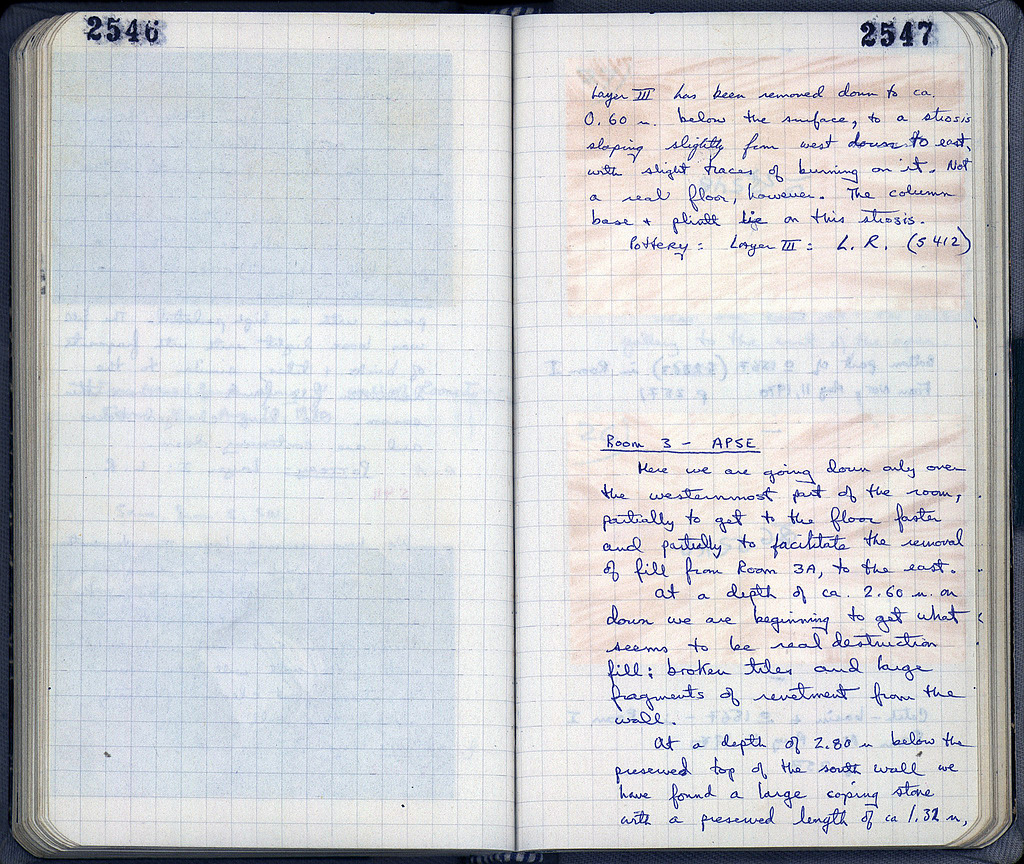 2546
2547
Layer III has been removed down to ca.
0.60 m. below the surface, to a strosis
sloping slightly from west down to east,
with slight traces of burning on it. Not
a real floor, however. The column
base + plinth lie on this strosis.
Pottery: Layer III: L. R. (S 412)
Room 3 - APSE
Here we are going down only over
the westernmost part of the room,
partially to get to the floor faster
and partially to facilitate the removal
of fill from Room 3A, to the east.
At a depth of ca. 2.60 m. on
down we are beginning to get what
seems to be real destruction
fill: broken tiles and large
fragments of revetment from the
wall.
At a depth of 2.80 m below the
preserved top of the south wall we
have found a large coping stone
with a preserved length of ca 1.32 m,